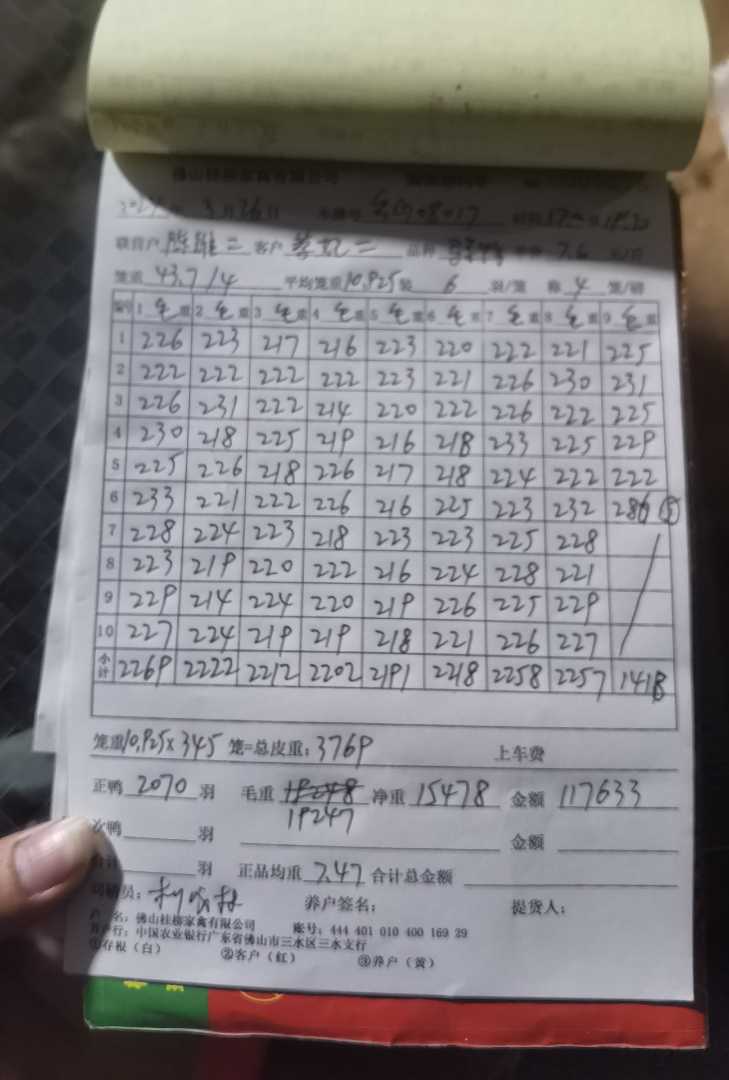 3月26日
联营户 客户 蔡记二 品种 7.6
笼重 43.7/4 平均笼重10.925 装 6 羽/笼 称 4 笼/磅
编号 1 毛重 2 毛重 3 毛重 4 毛重 5 毛重 6 毛重 7 毛重 8 毛重 9 毛重
1 226 223 217 216 223 220 222 221 225
2 222 222 222 222 223 221 226 230 231
3 226 231 222 214 220 222 226 222 225
4 230 218 225 219 216 218 233 225 229
5 225 226 218 226 217 218 224 222 222
6 233 221 222 226 216 225 223 232 286 ⑤
7 228 224 223 218 223 223 225 228
8 223 219 220 222 216 224 228 221
9 229 214 224 220 219 226 225 229
10 227 224 219 219 218 221 226 227
小计 2269 2222 2212 2202 2191 2218 2258 2257 1418
笼重10.925×345 笼=总皮重:3769 上车费
正鸭 2070 羽 毛重 19248 净重 15478 金额 117633
19247
次鸭 羽 金额
合计 羽 正品均重 7.47 合计总金额
司磅员: 养户签名: 提货人:
户 名:佛山桂柳家禽有限公司 账号:444 401 010 400 169 29
开户行:中国农业银行广东省佛山市三水区三水支行
①存根(白) ②客户(红) ③养户(黄)